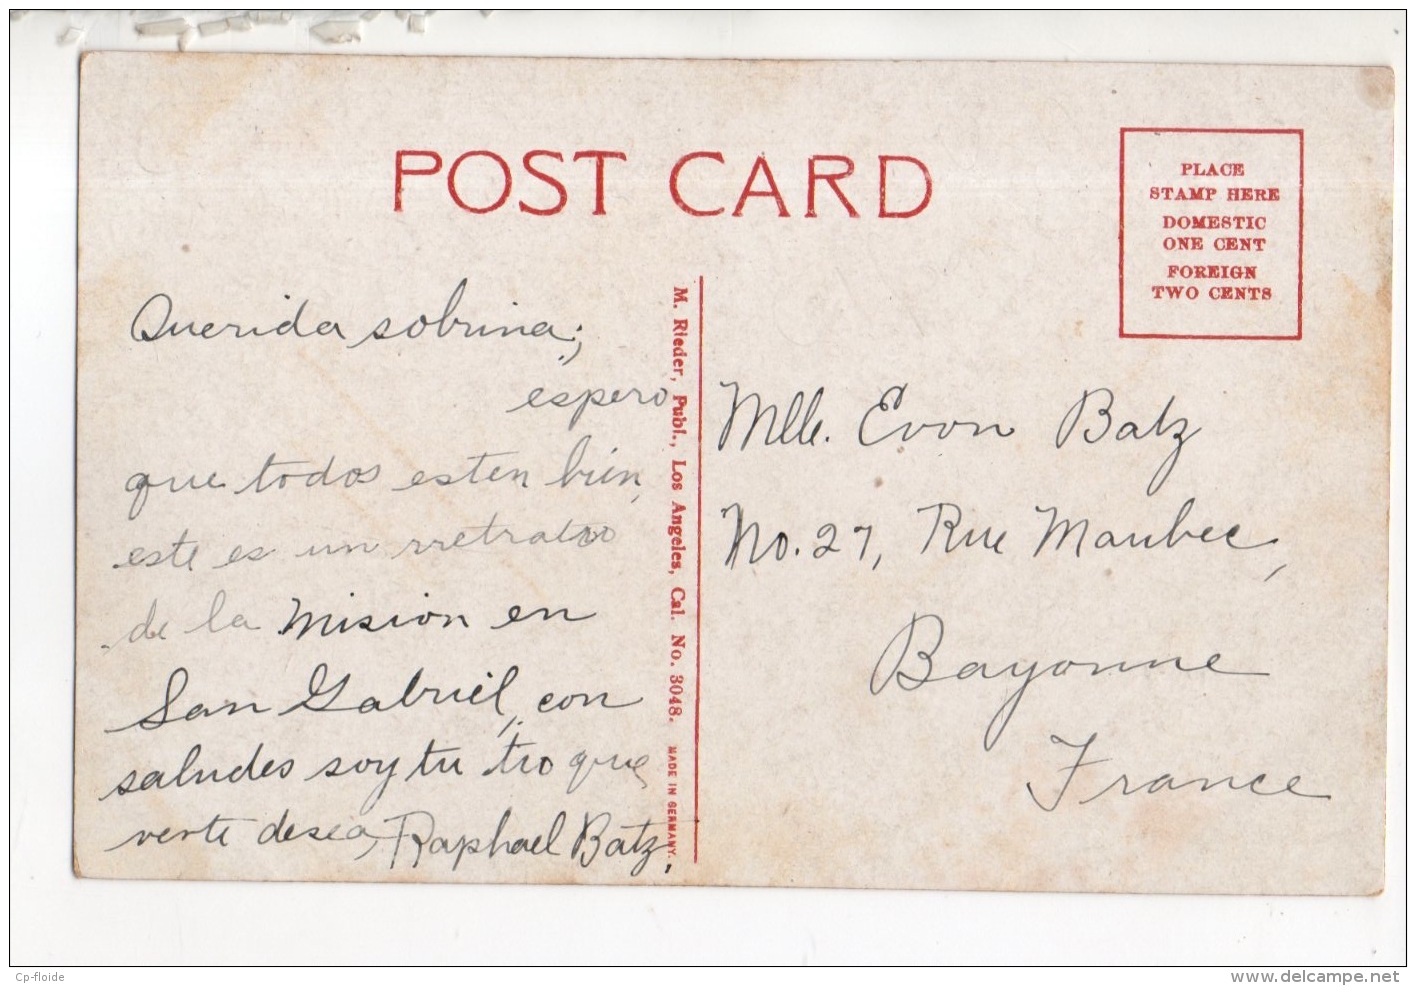 POST CARD
PLACE
STAMP HERE
DOMESTIC
ONE CENT
FOREIGN
TWO CENTS
Querida sobrina;
espero
que todos esten bien,
este es un rretratoo
de la Mision en
San Gabriel, con
saludes soy tu tio que
verte desea, Raphael Batz.
M. Rieder, Publ., Los Angeles, Cal. No. 3048. MADE IN GERMANY.
Mlle. Evon Batz
No. 27, Rue Maubec,
Bayonne
France
Cp-floide
www.delcampe.net